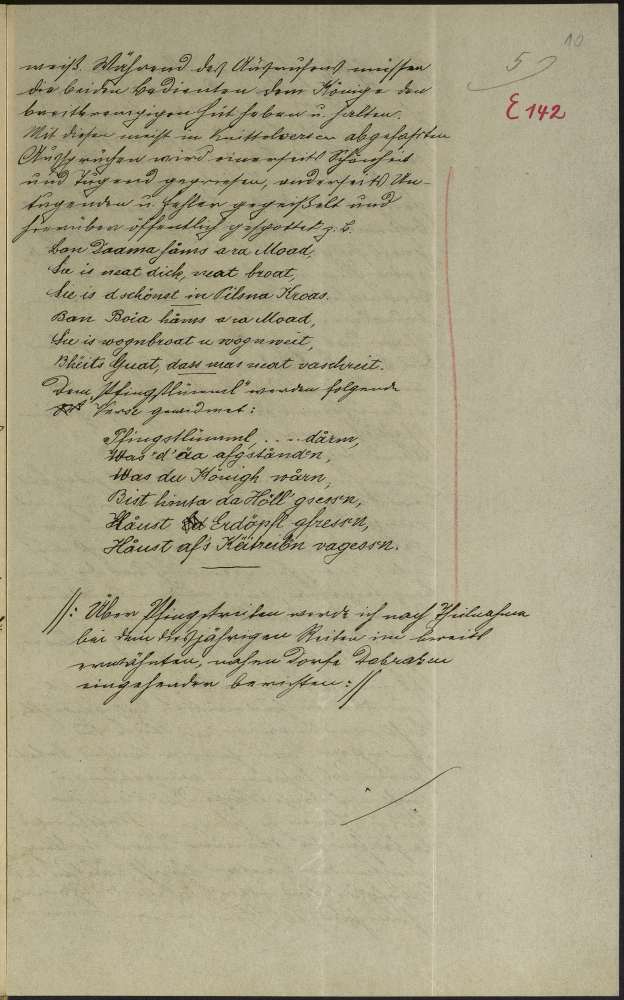 10
5
E 142
weiß. Während des Ausrufens müssen
die beiden Bedienten dem Könige den
breitkrempigen Hut heben u. halten.
Mit diesen meist in Knittelversen abgefaßten
Aussprüchen wird einerseits Schönheit
und Tugend gepriesen, anderseits Un-
tugenden u. Fehler gegeißelt und
hierüber öffentlich gespottet z. B.
Ban Daama håms a ra Moad,
Sie is neat dick, neat broat,
Sie is d schönst in Pilsna Kroas.
Ban Boia håms a ra Moad,
Sie is wognbroat u wognweit,
Bhëits Guat, dass mas neat vaschreit.
Dem "Pfingstlümml" werden folgende
Verse gewidmet:
Pfingstlümml, .... dårm,
Was 'd' äa afgständ'n,
Was du Königh wårn,
Bist hinta da Höll gsess'n,
Håust Erdöpfl gfress'n,
Håust af's Käitreib'n vagess'n.
//: Über Pfingstreiten werde ich nach Theilnahme
bei dem diesjährigen Reiten im bereits
erwähnten, nahen Dorfe Dobraken
eingehender berichten ://